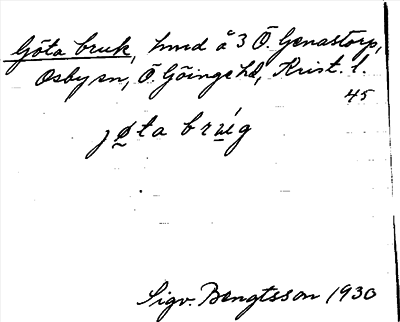 Göta bruk, hmd å 3 Ö. Genastorp,
Osby sn, Ö. Göinge hd, Krist. l.
45
jøta bruig
Sigv. Bengtsson 1930